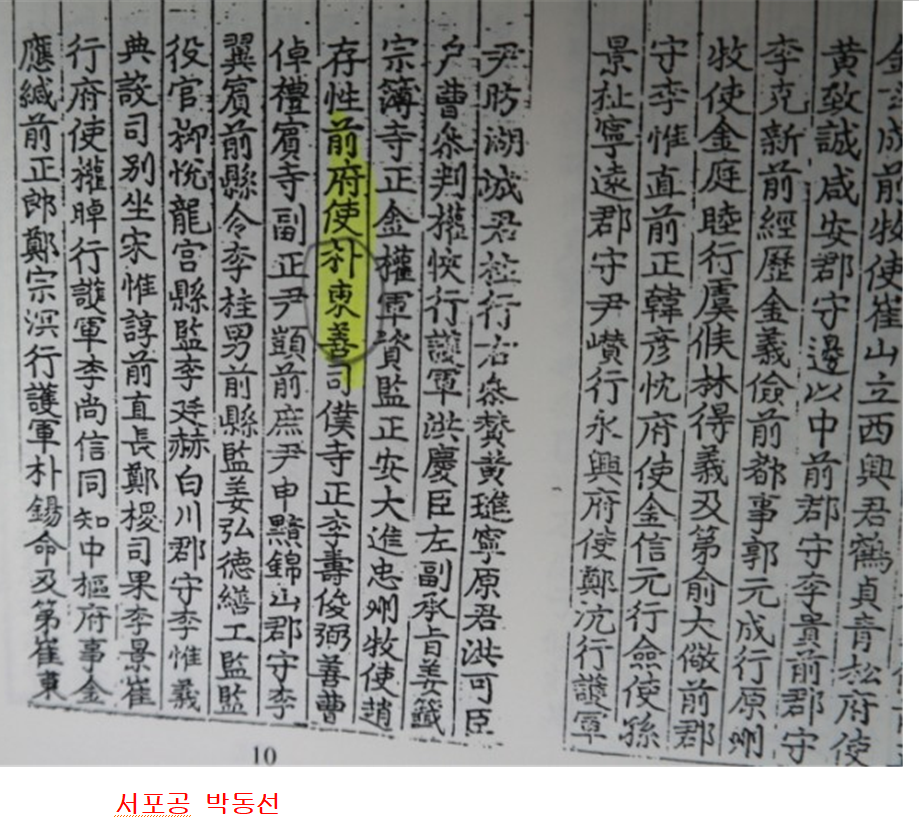 成前牧使崔山立西興君鶴貞青松府使
黃致誠咸安郡守邊以中前郡守李貴前郡守
李克新前經歷金義儉前都事郭元成行原州
牧使金庭睦行虞候林得義及第俞大儆前郡
守李惟直前正韓彦忱府使金信元行僉使孫
景祉寧遠郡守尹巑行永興府使鄭沆行護軍
尹昉湖城君柱行右參贊黃璡寧原君洪可臣
户曹參判權悏行護軍洪慶臣左副承旨姜籤
宗簿寺正金權軍資監正安大進忠州牧使趙
存性前府使朴東善司僕寺正李壽俊弼善曹
倬禮賓寺副正尹顗前庶尹申黯錦山郡守李
翼賓前縣令李桂男前縣監姜弘德繕工監監
役官柳悅龍宮縣監李廷赫白川郡守李惟義
典設司別坐宋惟諄前直長鄭㮨司果李景崔
行府使權晫行護軍李尚信同知中樞府事金
應緘前正郎鄭宗溟行護軍朴錫命及第崔東
10
서포공 박동선